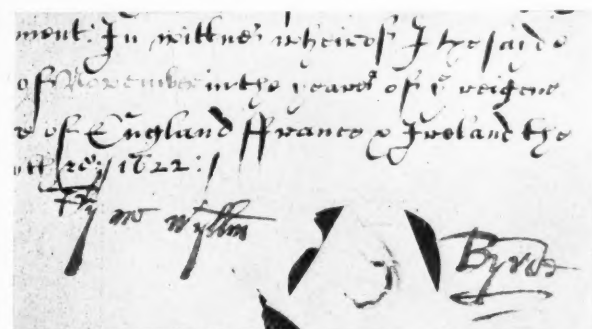 ment: In wittnes whereof I the saide
of November in the yeares of yͤ reigne
of England ffrance & Ireland the
1622:
By me Wyllm Byrde